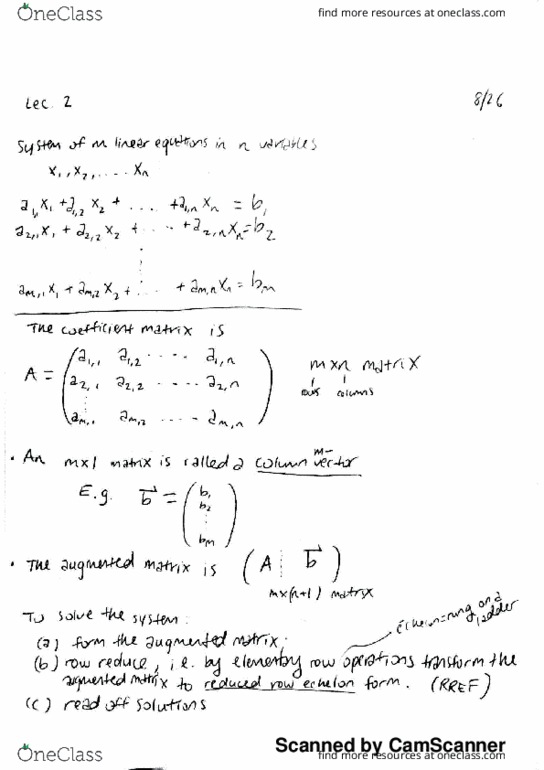 OneClass
find more resources at oneclass.com
Lec. 2
8/26
System of m linear equations in n variables
x₁, x₂, .... xₙ
a₁,₁x₁ + a₁,₂ x₂ + .... + a₁,ₙ xₙ = b₁
a₂,₁x₁ + a₂,₂ x₂ + .... + a₂,ₙ xₙ = b₂
⋮
aₘ,₁ x₁ + aₘ,₂ x₂ + .... + aₘ,ₙ xₙ = bₘ
The coefficient matrix is
A = ( a₁,₁ a₁,₂ ..... a₁,ₙ
a₂,₁ a₂,₂ ..... a₂,ₙ
⋮
aₘ,₁ aₘ,₂ .... aₘ,ₙ )
m x n matrix
rows columns
• An mx1 matrix is called a column m-vector
E.g. b⃗ = ( b₁
b₂
⋮
bₘ )
• The augmented matrix is ( A ⋮ b⃗ )
mx(n+1) matrix
To solve the system:
Echelon=rung on a
ladder
(a) form the augmented matrix.
(b) row reduce, i.e. by elementry row operations transform the
augmented matrix to reduced row echelon form. (RREF)
(c) read off solutions
Scanned by CamScanner
OneClass
find more resources at oneclass.com